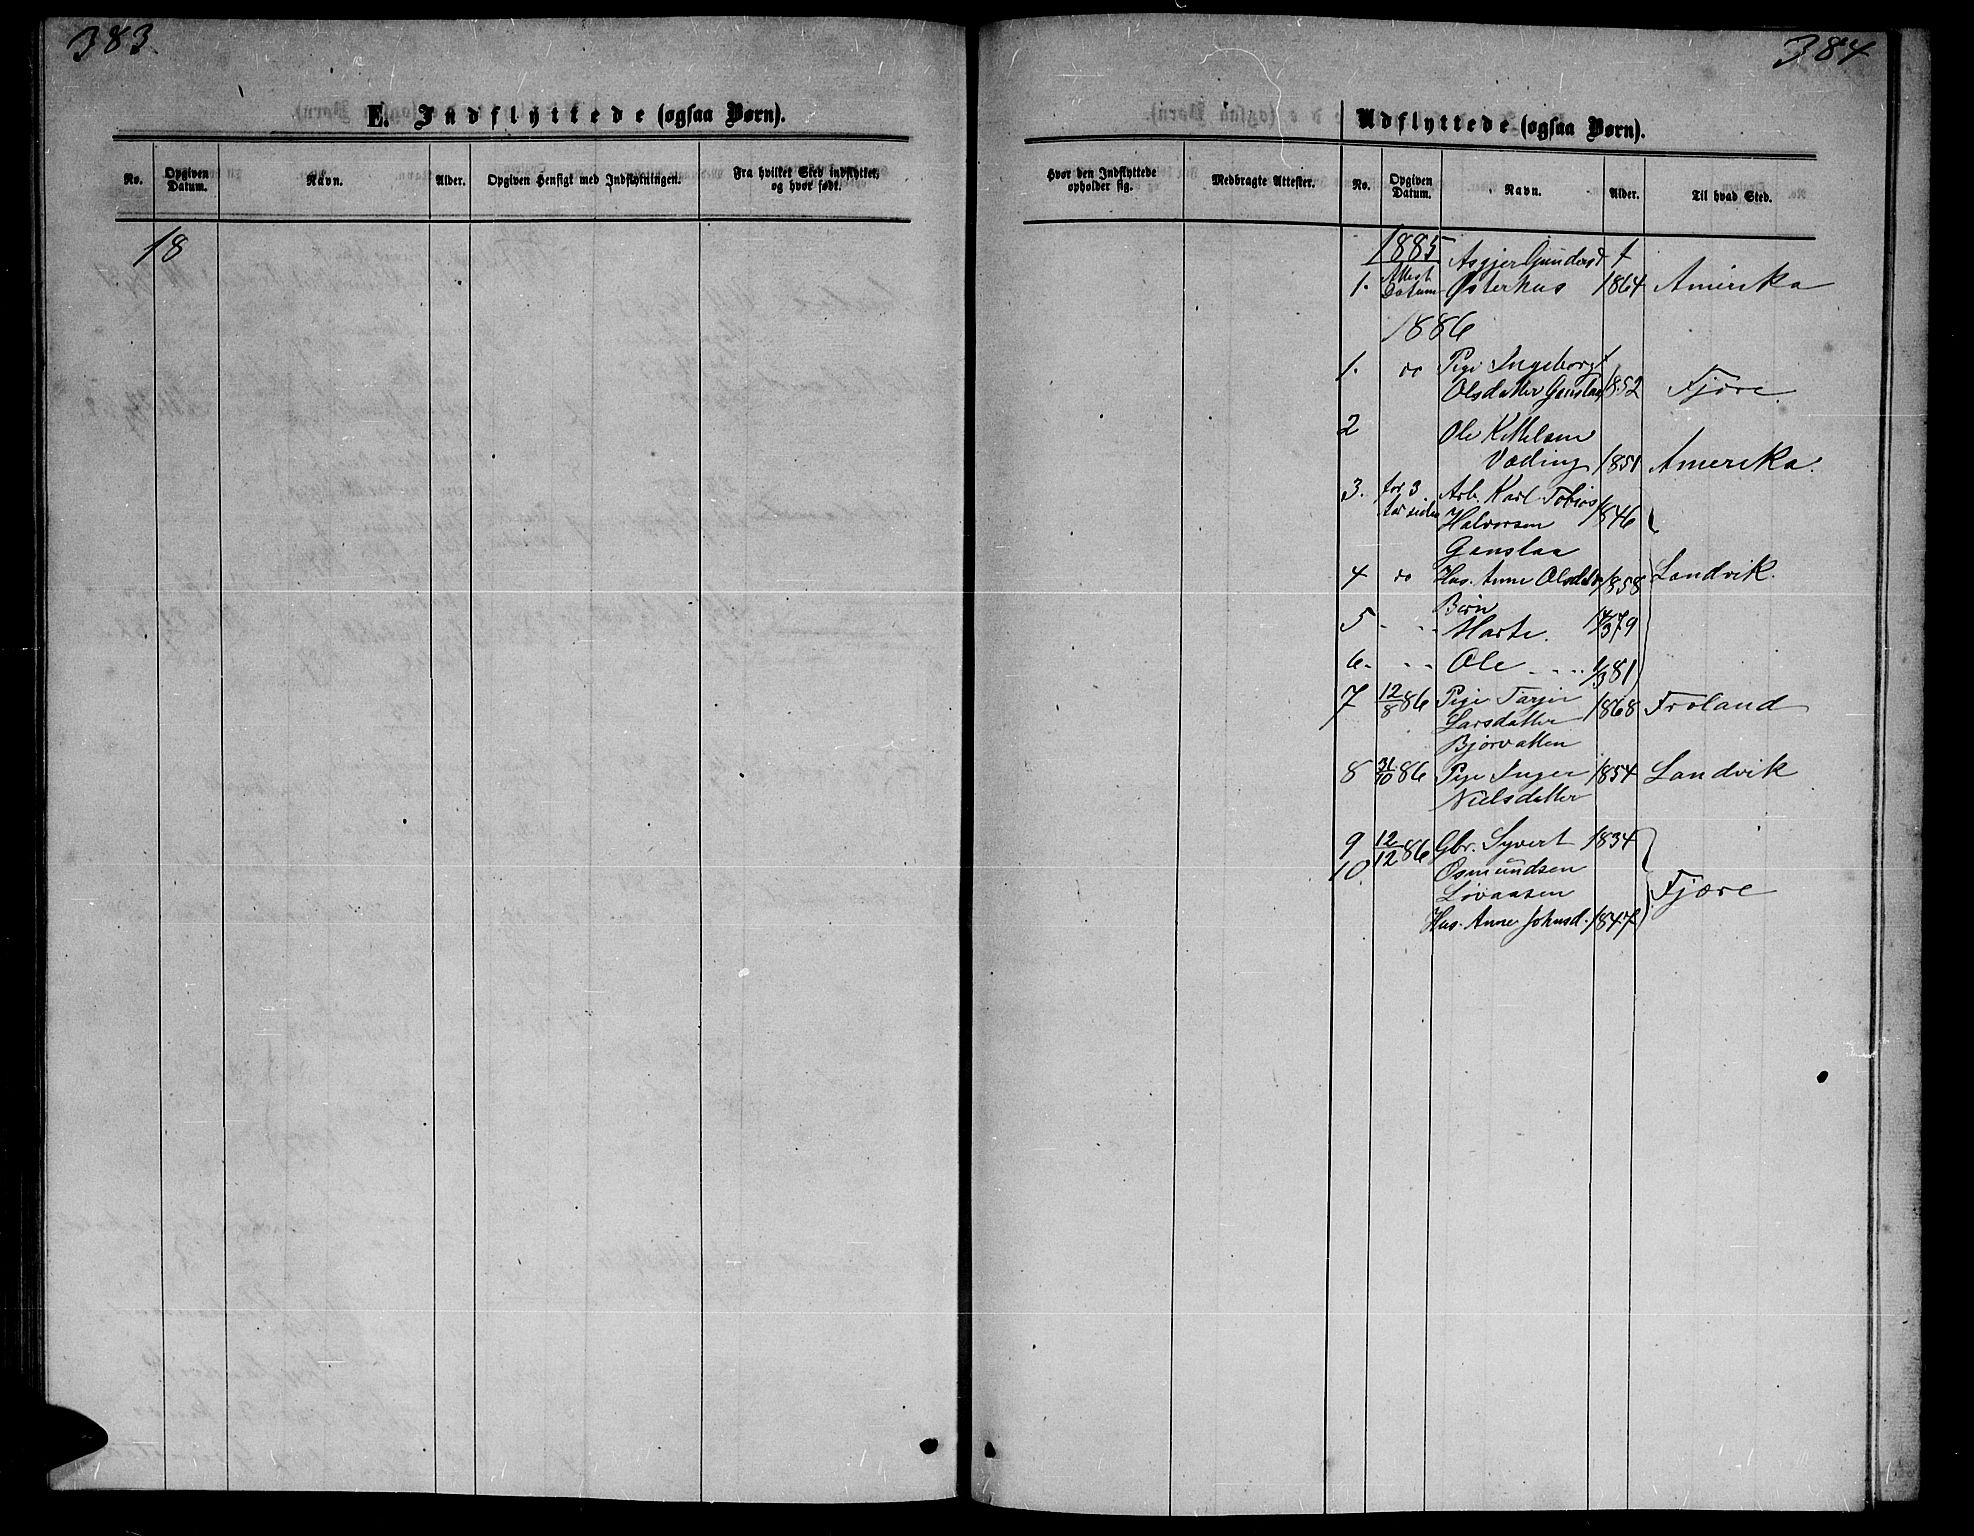 383.
E. Indflyttede (ogsaa Børn).
No.
Opgiven Datum.
Navn.
Alder.
Opgiven Hensigt med Indflytningen.
Fra hvilket Sted indflyttet, og hvor født.
18
384
Udflyttede (ogsaa Børn).
Hvor den Indflyttede opholder sig.
Medbragte Attester.
No.
Opgiven Datum.
Navn.
Alder.
Til hvad Sted.
1885 Asgjer Gundersd f
1. Attest Datum Østerhus 1864 Amerika
1886
1. do Pige Ingeborg f
Olsdatter Ganslaa 1852 Fjære.
2 Ole Kittelsen
Væding 1851 Amerika.
3. for 3 Arb. Karl Tobias
Halvorsen 1846
Ganslaa
4 do Hus. Anne Olsdatter 1858 Landvik.
Børn
5 - - - Marte. 14/3 79
6. - - Ole - - - 1/3 81
7 12/8 86 Pige Tarjer 1868 Froland
Larsdatter
Bjorvatten
8 31/10 86 Pige Inger 1854 Landvik
Nielsdatter
9 12/12 86 Gbr. Syvert 1834
10 Osmundsen
Løvaasen Fjære
Hus. Anne Johnsd. 1847